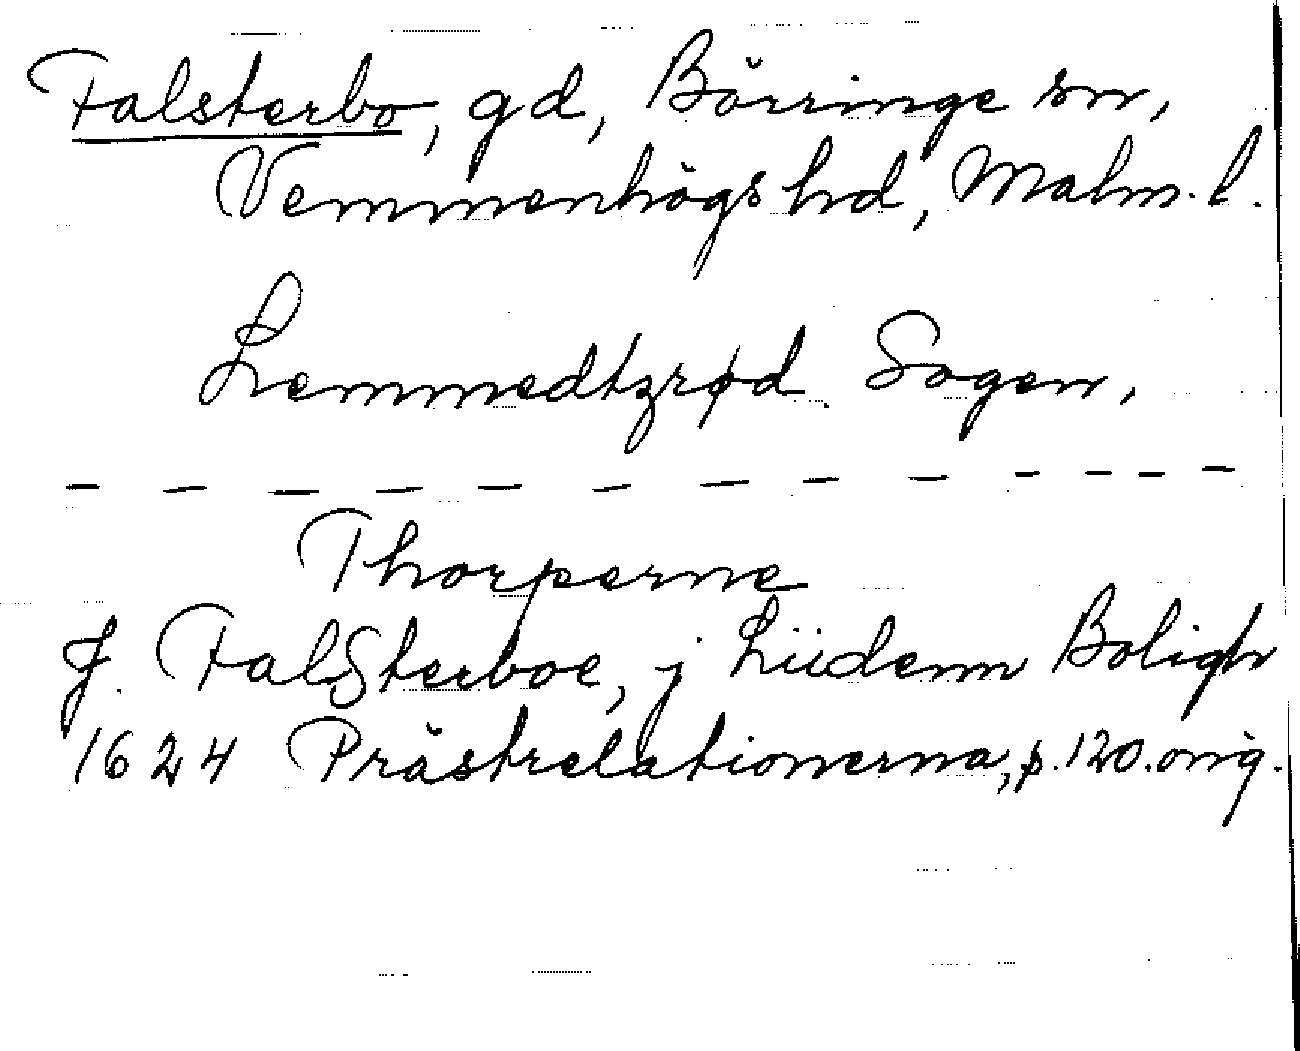 Falsterbo, gd, Börringe sn,
Vemmenhögs hd, Malm. l.
Lemmedtzrød Sogen,
- - - - - - - - - - - -
Thorperne
J. Falßterboe, j Liidenn Boligh
1624 Prästrelationerna, p. 120. orig.